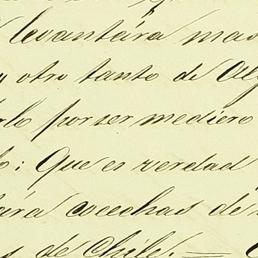 levantára mas
y otro tanto de Al
lo por ser mediero
: Que es verdad
ára cocechas de
s de Chile. —